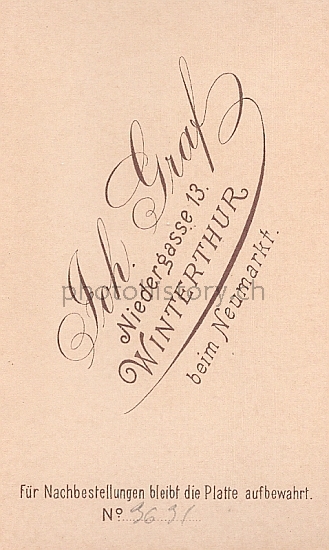 Joh. Graf
Niedergasse 13.
WINTERTHUR
beim Neumarkt.
photohistory.ch
Für Nachbestellungen bleibt die Platte aufbewahrt.
Nº 3631